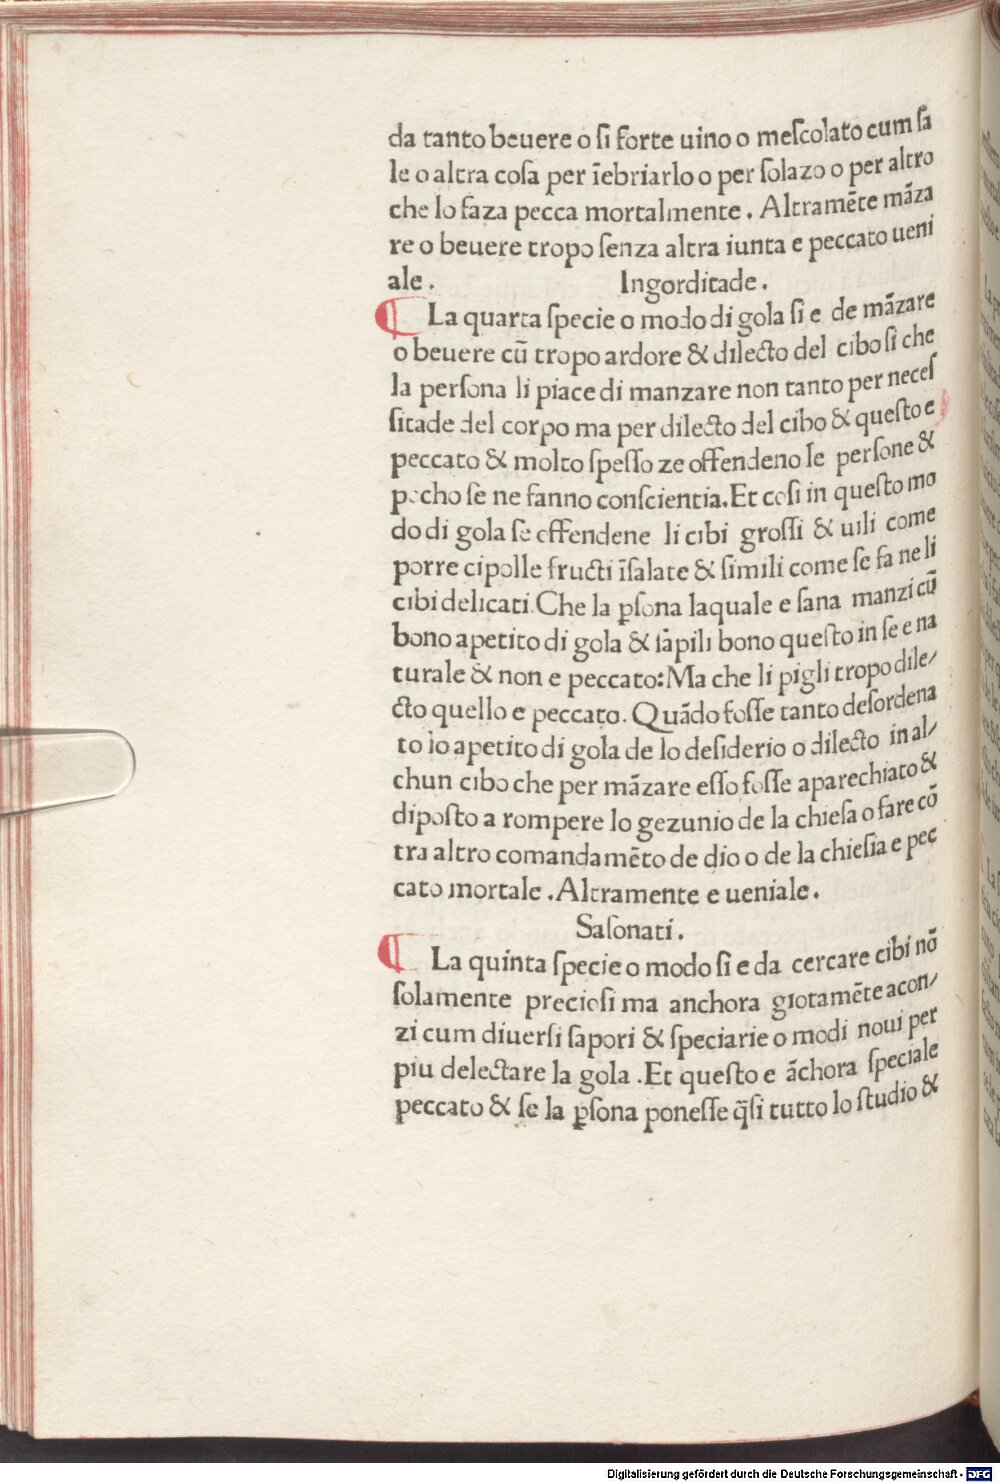 da tanto beuere o ſi forte uino o meſcolato cum ſa
le o altra coſa per īebriarlo o per ſolazo o per altro
che lo faza pecca mortalmente . Altramēte māza
re o beuere tropo ſenza altra iunta e peccato ueni
ale . Ingorditade .
¶ La quarta ſpecie o modo di gola ſi e de māzare
o beuere cū tropo ardore & dilecto del cibo ſi che
la perſona li piace di manzare non tanto per neceſ
ſitade del corpo ma per dilecto del cibo & queſto e
peccato & molto ſpeſſo ze offendeno le perſone &
pocho ſe ne fanno conſcientia. Et coſi in queſto mo
do di gola ſe offendene li cibi groſſi & uili come
porre cipolle fructi īſalate & ſimili come ſe fa ne li
cibi delicati. Che la p̱ſona laquale e ſana manzi cū
bono apetito di gola & li āpili bono queſto in ſe e na
turale & non e peccato: Ma che li pigli tropo dile⸗
cto quello e peccato. Quādo foſſe tanto deſordena
to lo apetito di gola de lo deſiderio o dilecto in al⸗
chun cibo che per māzare eſſo foſſe aparechiato &
dipoſto a rompere lo gezunio de la chieſa o fare cō
tra altro comandamēto de dio o de la chieſia e pec
cato mortale . Altramente e ueniale .
Saſonati .
¶ La quinta ſpecie o modo ſi e da cercare cibi nō
ſolamente precioſi ma anchora giotamēte acon⸗
zi cum diuerſi ſapori & ſpeciarie o modi noui per
piu delectare la gola . Et queſto e āchora ſpeciale
peccato & ſe la p̱ſona poneſſe q̄ſi tutto lo ſtudio &
Digitalisierung gefördert durch die Deutsche Forschungsgemeinschaft - DFG